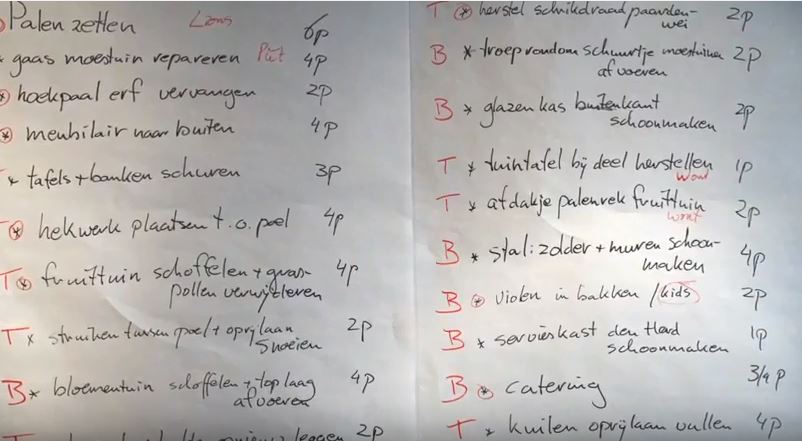 Palen zetten Lions 6p
* gaas moestuin repareren Piet 4p
* hoekpaal erf vervangen 2p
* meubilair naar buiten 4p
* tafels + banken schuren 3p
T * hekwerk plaatsen t.o. poel 4p
T * fruittuin schoffelen + gras-
pollen verwijderen 4p
T * struiken tussen poel + oprijlaan
snoeien 2p
B * bloementuin schoffelen + toplaag
afvoeren 4p
leggen 2p
T * herstel schrikdraad paarden-
wei 2p
B * troep rondom schuurtje moestuin
afvoeren 2p
B * glazen kas buitenkant
schoonmaken 2p
T * tuintafel bij deel herstellen 1p
Wout
T * afdakje palenrek fruittuin 2p
Wout
B * stal: zolder + muren schoon-
maken 4p
B * violen in bakken / kids 2p
B * servieskast den Hard
schoonmaken 1p
B * catering 3/4 p
T * kuilen oprijlaan vullen 4p